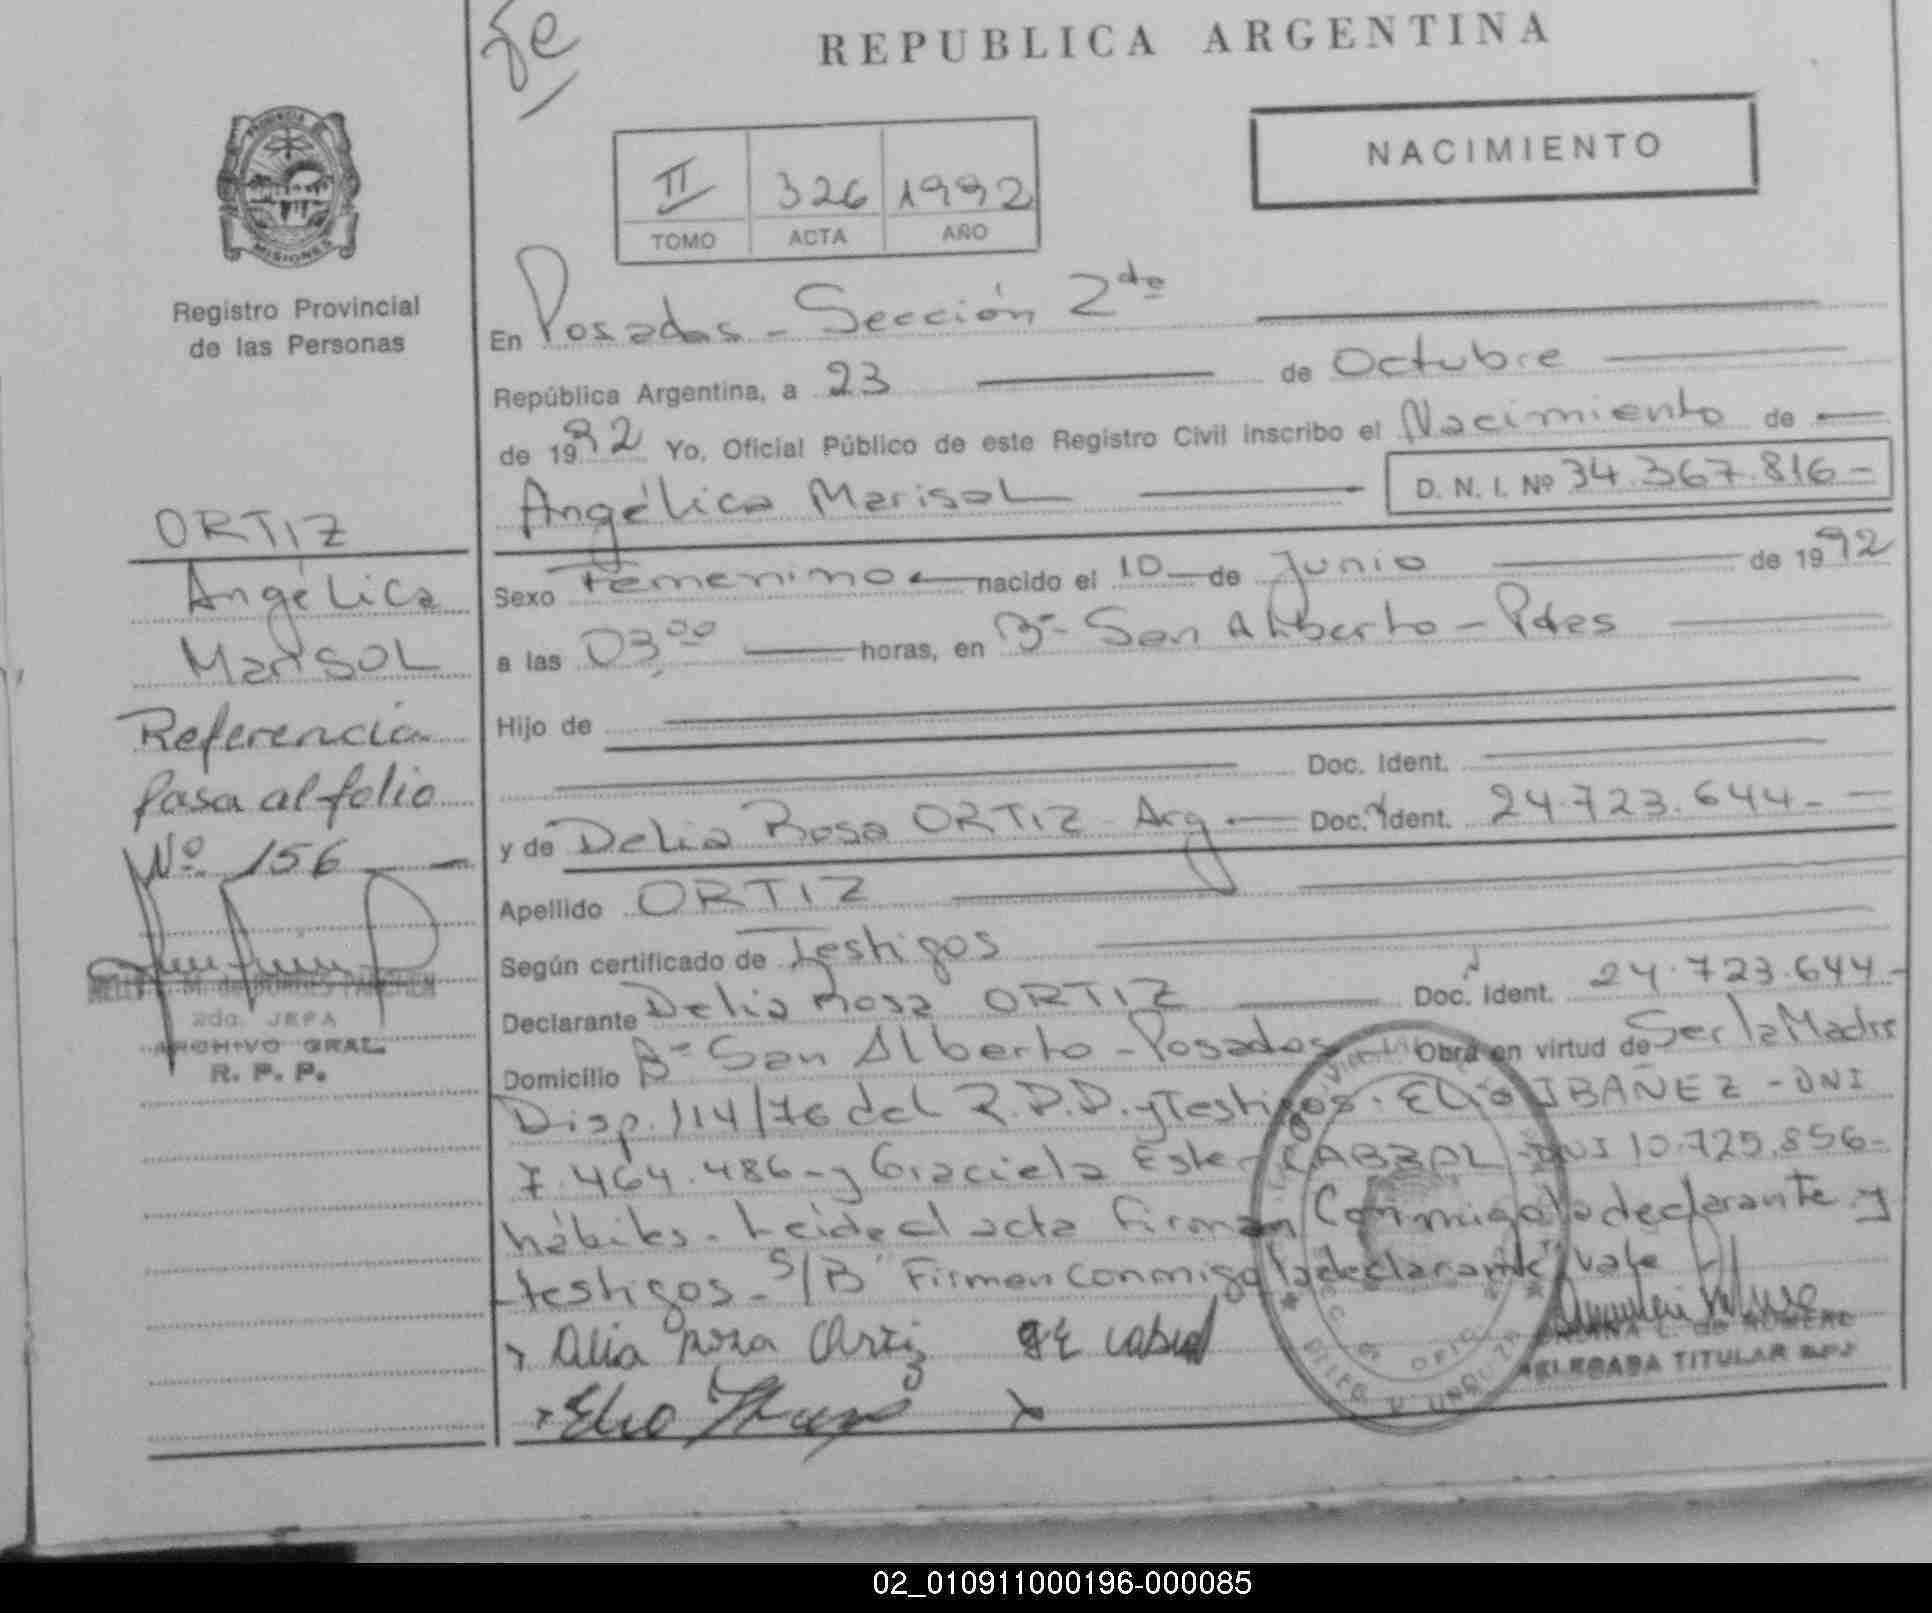 REPUBLICA ARGENTINA
NACIMIENTO
II 326 1992
TOMO ACTA AÑO
PROVINCIA DE
MISIONES
Registro Provincial
de las Personas
ORTIZ
Angélica
Marisol
Referencia
pasa al folio
Nº 156
2da. JEFA
ARCHIVO GRAL.
R. P. P.
En Posadas - Sección 2da
República Argentina, a 23 de Octubre
de 1992 Yo, Oficial Público de este Registro Civil inscribo el Nacimiento de
Angélica Marisol D. N. I. Nº 34.367.816-
Sexo Femenino nacido el 10 de Junio de 1992
a las 03,00 horas, en Bº San Alberto - Pdas
Hijo de
Doc. Ident.
y de Delia Rosa ORTIZ - Arg. Doc. Ident. 24.723.644-
Apellido ORTIZ
Según certificado de Testigos
Declarante Delia Rosa ORTIZ Doc. Ident. 24.723.644-
Domicilio Bº San Alberto - Posadas Obra en virtud de Ser la Madre
Disp. 114/76 del R.P.P. y Testigos. Elio IBAÑEZ - DNI
7.464.486- y Graciela Ester CABRAL DNI 10.725.856-
hábiles. Leída el acta firman Conmigo la declarante y
testigos - S/B "Firman conmigo la declarante" vale
Delia Rosa Ortiz G E Cabral
Elio
DELEGADA TITULAR
02_010911000196-000085